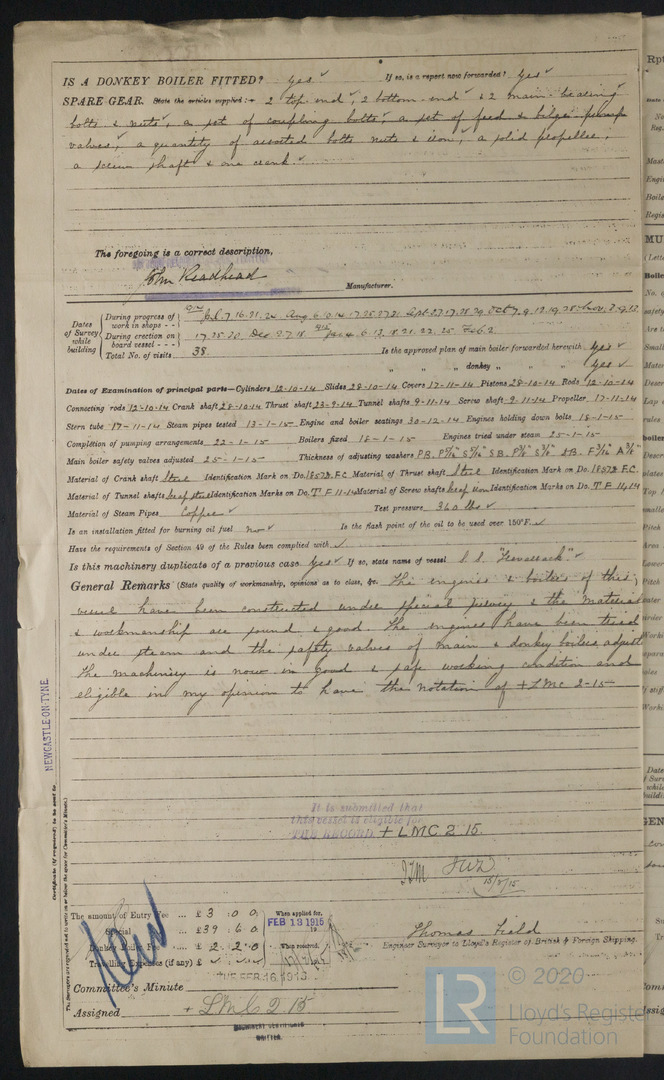 IS A DONKEY BOILER FITTED? Yes ✓ If so, is a report now forwarded? Yes ✓
SPARE GEAR. State the articles supplied:— 2 top end, 2 bottom end & 2 main bearing
bolts & nuts, a set of coupling bolts, a set of feed & bilge pump
valves, a quantity of assorted bolts nuts & iron, a solid propeller,
a screw shaft & one crank. ✓
The foregoing is a correct description,
John Readhead
Manufacturer.
Dates of Survey while building
During progress of work in shops - -
During erection on board vessel - - -
Total No. of visits 38.
Is the approved plan of main boiler forwarded herewith Yes ✓
" " " donkey " " " Yes ✓
Dates of Examination of principal parts—Cylinders 12-10-14 Slides 28-10-14 Covers 17-11-14 Pistons 28-10-14 Rods 12-10-14
Connecting rods 12-10-14 Crank shaft 28-10-14 Thrust shaft 23-9-14 Tunnel shafts 9-11-14 Screw shaft 9-11-14 Propeller 17-11-14
Stern tube 17-11-14 Steam pipes tested 13-1-15 Engine and boiler seatings 30-12-14 Engines holding down bolts 18-1-15
Completion of pumping arrangements 22-1-15 Boilers fixed 18-1-15 Engines tried under steam 25-1-15
Main boiler safety valves adjusted 25-1-15 Thickness of adjusting washers
Material of Crank shaft Steel Identification Mark on Do. 1857B.F.C Material of Thrust shaft Steel Identification Mark on Do. 1857B F.C.
Material of Tunnel shafts Identification Marks on Do. T.F 11-14 Material of Screw shafts Identification Marks on Do. T F 11-14
Material of Steam Pipes Copper ✓ Test pressure 360 lbs ✓
Is an installation fitted for burning oil fuel no ✓ Is the flash point of the oil to be used over 150°F. ✓
Have the requirements of Section 49 of the Rules been complied with ✓
Is this machinery duplicate of a previous case Yes ✓ If so, state name of vessel s.s.
General Remarks (State quality of workmanship, opinions as to class, &c. The engines & boilers of this
vessel have been constructed under special survey & the material
& workmanship are sound & good. The engines have been tried
under steam and the safety valves of main & donkey boilers adjust
The machinery is now in good & safe working condition and
eligible in my opinion to have the notation of + LMC 2-15
NEWCASTLE-ON-TYNE
Certificate (if required) to be sent to
The Surveyors are requested not to write on or below the space for Committee's Minute.
It is submitted that
this vessel is eligible for
THE RECORD. + LMC 2.15.
15/2/15
The amount of Entry Fee ... £ 3 . 0 . 0 When applied for,
Special ... £ 39 . 6 . 0 FEB 13 1915
Donkey Boiler Fee ... £ 2 . 2 . 0 When received,
Travelling Expenses (if any) £
Thomas Field
Engineer Surveyor to Lloyd's Register of British & Foreign Shipping.
TUE. FEB. 16. 1915
Committee's Minute
Assigned + LMC 2.15
MACHINERY CERTIFICATE
WRITTEN.
© 2020
LR
Lloyd's Register
Foundation